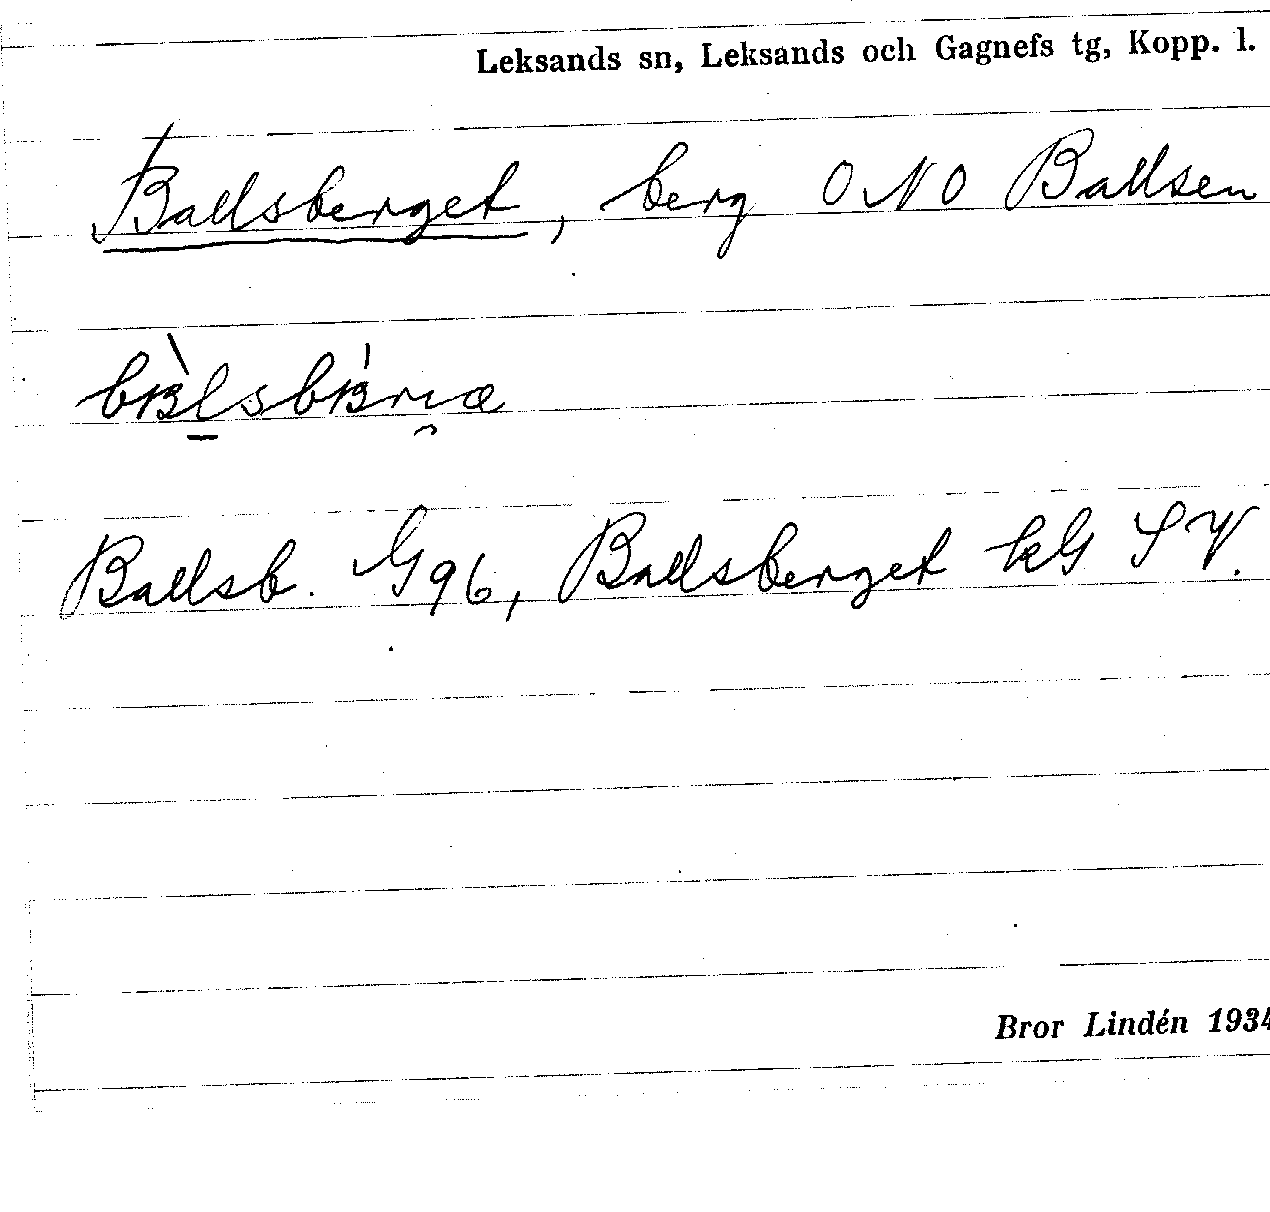 Leksands sn, Leksands och Gagnefs tg, Kopp. l.
Ballsberget, berg ONO Ballsen
Ballsb. G96, Ballsberget kG SV.
Bror Lindén 1934